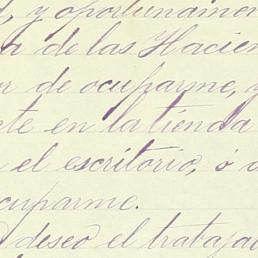 y oportunamen
a de las Hacien
or de ocuparme, y
te en la tienda
el escritorio, ó
cuparme.
deseo el trabaja